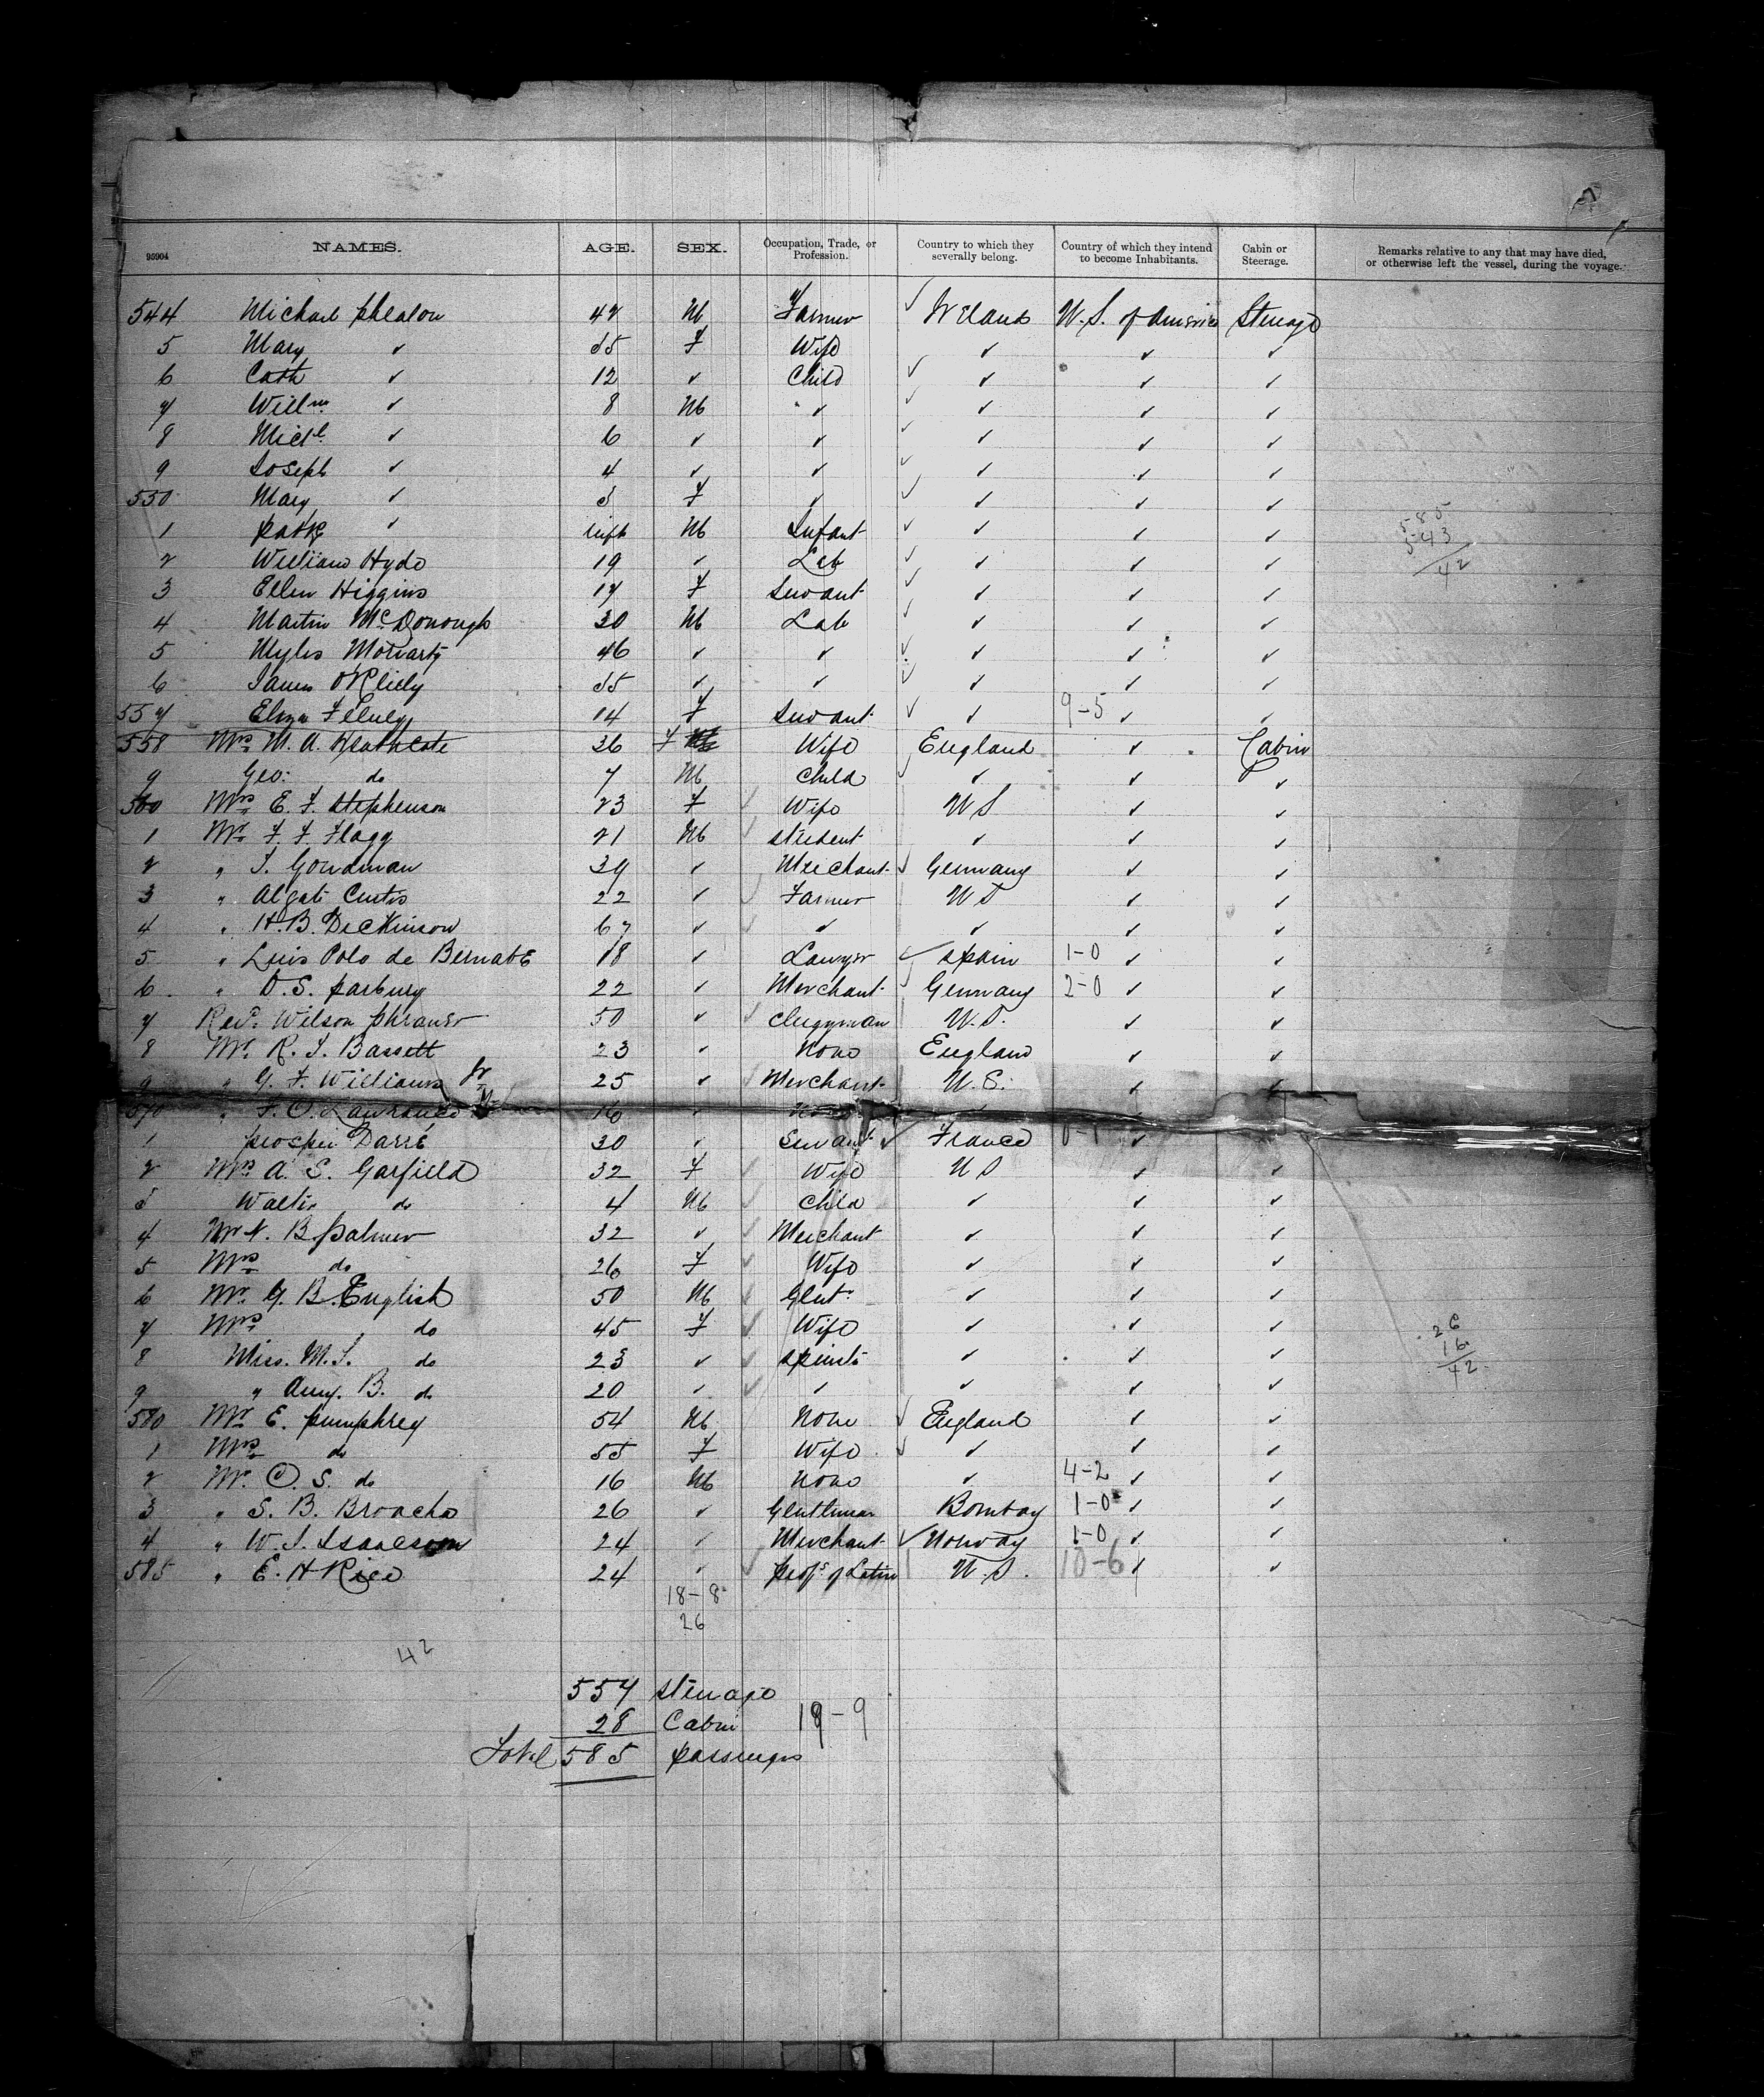 95904 NAMES. AGE. SEX. Occupation, Trade, or Profession. Country to which they severally belong. Country of which they intend to become Inhabitants. Cabin or Steerage. Remarks relative to any that may have died, or otherwise left the vessel, during the voyage.
544 Michael Phealon 42 M Farmer ✓ Ireland U.S. of America Steerage
5 Mary ✓ 35 F Wife ✓ ✓ ✓
6 Cath ✓ 12 ✓ Child ✓ ✓ ✓ ✓
7 Willm ✓ 8 M ✓ ✓ ✓ ✓ ✓
8 Michl ✓ 6 ✓ ✓ ✓ ✓ ✓ ✓
9 Joseph ✓ 4 ✓ ✓ ✓ ✓ ✓ ✓
550 Mary ✓ 3 F ✓ ✓ ✓ ✓ ✓
1 Patk ✓ inft M Infant ✓ ✓ ✓ ✓
585
543
42
2 William Hyde 19 ✓ Lab ✓ ✓ ✓ ✓
3 Ellen Higgins 17 F Servant ✓ ✓ ✓ ✓
4 Martin McDonough 30 M Lab ✓ ✓ ✓ ✓
5 Myles Moriarty 46 ✓ ✓ ✓ ✓ ✓ ✓
6 James O'Rliely 35 ✓ ✓ ✓ ✓ ✓ ✓
557 Eliza 14 F Servant ✓ ✓ 9-5 ✓ ✓
558 Mrs M. A. Heathcote 36 F Wife England ✓ Cabin
9 Geo: do 7 M Child ✓ ✓ ✓ ✓
560 Mrs E. F. Stephenson 23 F ✓ Wife U S ✓ ✓
1 Mr F. F. Flagg 21 M ✓ Student ✓ ✓ ✓
2 " S. Goodman 39 ✓ Merchant ✓ Germany ✓ ✓
3 " Algate Curtis 22 ✓ ✓ Farmer U S ✓ ✓
4 " H. B. Dickinson 67 ✓ ✓ ✓ ✓ ✓ ✓
5 " Luis Polo de Bernabé 18 ✓ Lawyer ✓ Spain 1-0 ✓ ✓
6 " D. S. Parbury 22 ✓ Merchant ✓ Germany 2-0 ✓ ✓
7 Revd. Wilson Phraner 50 ✓ ✓ Clergyman U.S. ✓ ✓
8 Mr. R. J. Bassett 23 ✓ None England ✓ ✓
9 " G. F. Williams Jr 25 ✓ ✓ Merchant U.S. ✓ ✓
570 " F. O. Lawrance 16 ✓
1 Prosper Darré 30 ✓ Servant ✓ France 0-1 ✓
2 Mrs A. S. Garfield 32 F ✓ Wife U S ✓ ✓
3 Walter do 4 M ✓ Child ✓ ✓ ✓
4 Mr N. B. Palmer 32 ✓ ✓ Merchant ✓ ✓ ✓
5 Mrs do 26 F ✓ Wife ✓ ✓ ✓
6 Mr G. B. English 50 M ✓ Glent ✓ ✓ ✓
7 Mrs do 45 F ✓ Wife ✓ ✓ ✓
8 Miss. M. S. do 23 ✓ ✓ Spinstr ✓ ✓ ✓
26
16
42
9 " Amy. B. do 20 ✓ ✓ ✓ ✓ ✓ ✓
580 Mr E. Pumphrey 54 M None ✓ England ✓ ✓
1 Mrs do 55 F Wife ✓ ✓ ✓ ✓
2 Mr. C. S. do 16 M None ✓ 4-2 ✓ ✓
3 " S. B. Broacha 26 ✓ Glentleman Bombay 1-0 ✓ ✓
4 " W. J. Isaacson 24 ✓ Merchant ✓ Norway 1-0 ✓ ✓
585 " E. H. Rice 24 ✓ ✓ Profs of Latin U.S. 10-6 ✓ ✓
18-8
26
42
557 Steerage
28 Cabin 19-9
Total 585 Passengers